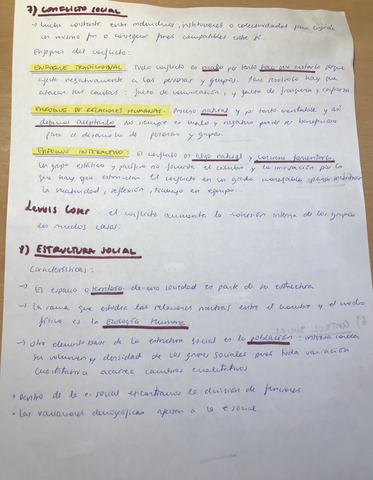 7) CONFLICTO SOCIAL
→ Lucha constante entre individuos, instituciones o colectividades para
un mismo fin o conseguir fines compatibles entre sí.
Enfoques del conflicto:
ENFOQUE TRADICIONAL: Todo conflicto es malo por tanto hay que evitarlo porque
afecta negativamente a las personas y grupos. Para resolverlo hay que
atacar sus causas: falta de comunicación, y falta de franqueza y confianza
ENFOQUE DE RELACIONES HUMANAS: Proceso natural y por tanto inevitable y así
debemos aceptarlo. No siempre es malo y negativo puede ser beneficioso
para el desarrollo de personas y grupos.
ENFOQUE INTERACTIVO: El conflicto es algo natural y conviene fomentarlo.
Un grupo estático y pacífico no fomenta el cambio y la innovación por lo
que hay que estimular el conflicto en un grado manejable
la creatividad, reflexión, trabajo en equipo.
Lewis Coser: el conflicto aumenta la cohesión interna de los grupos
en muchos casos.
8) ESTRUCTURA SOCIAL
Características:
→ El espacio o territorio de una sociedad es parte de su estructura
→ La rama que estudia las relaciones mutuas entre el hombre y el medio
físico es la Ecología Humana
→ Otro elemento base de la estructura social es la población: interesa conocer
su volumen y densidad de los grupos sociales pues toda variación
cuantitativa acarrea cambios cualitativos
• Dentro de la e. social encontramos la división de funciones
• Las variaciones demográficas afectan a la e. social